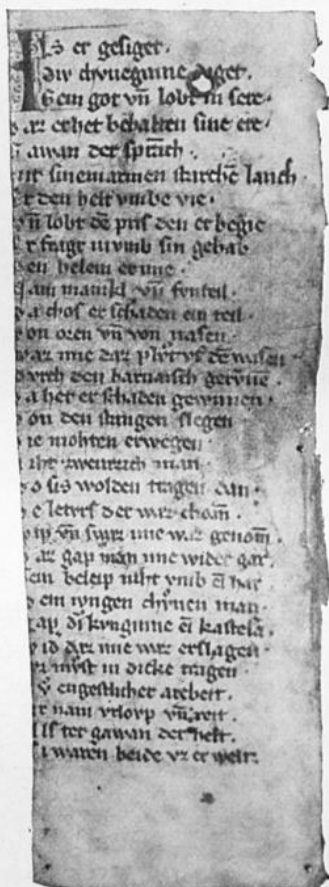 ls er gesiget ·
diw chvneginne
Gein got vn̄ lobt in sere ·
ar er het behalten sine ere ·
awan der sprich ·
mit sinen armen starchē
r den helt vmbe vie ·
vn̄ lobt dē pris den er begie
r fragt in vmb sin gehab
en helem er
am mantel vn̄
a chos er schaden ein teil ·
on oren vn̄ von nasen ·
war nie daz dē wasen
vrch den harnaisch
a het er schaden gewunnen ·
on den stangen slegen
ie mohten erwegen
iht zwenzech man ·
o sis wolden tragen dan ·
e letvrs der war chom̄ ·
ip vn̄ swaz ime waz genom̄ ·
az gap man ime wider gar ·
em beleip niht vmb ei har
em ivngen chvnen man ·
gap di kvnginne ei kastela
id daz ime waz erslagen ·
mvst in dicke tragen
engestlicher arebeit ·
r nam vrlovp vn̄ reit ·
ls ter gawan der helt ·
i waren beide vz er welt ·